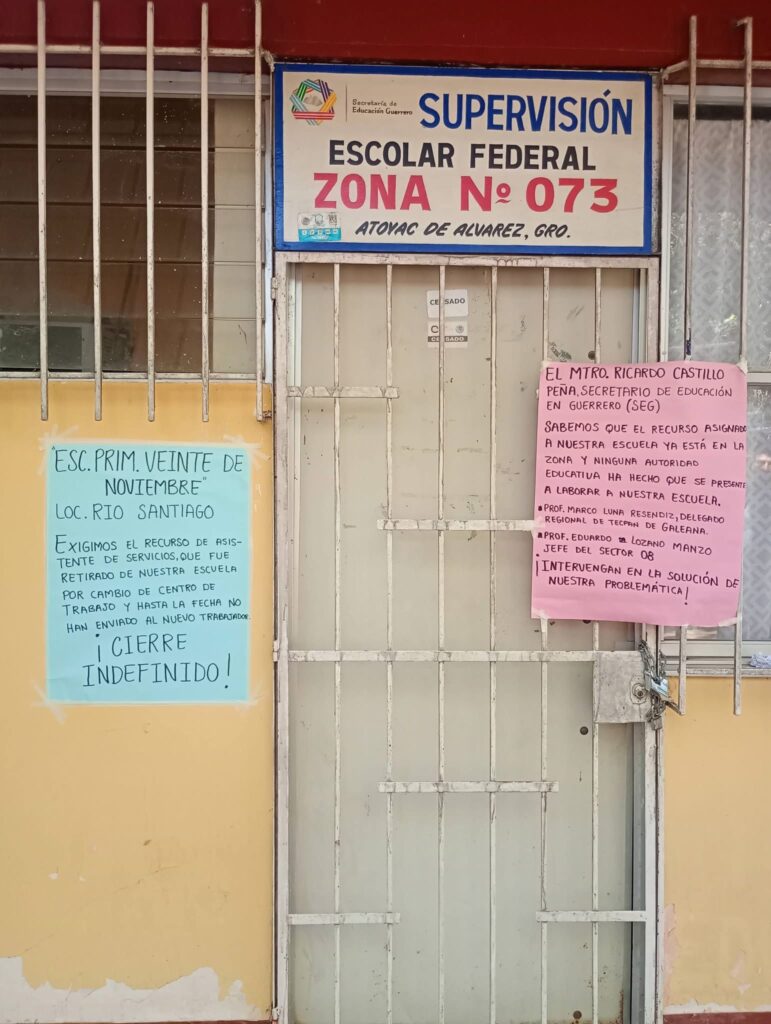 Secretaría de
Educación Guerrero
SUPERVISIÓN
ESCOLAR FEDERAL
ZONA Nº 073
ATOYAC DE ALVAREZ, GRO.
CENSADO
CENSADO
"ESC. PRIM. VEINTE DE
NOVIEMBRE"
LOC. RIO SANTIAGO
EXIGIMOS EL RECURSO DE ASIS-
TENTE DE SERVICIOS, QUE FUE
RETIRADO DE NUESTRA ESCUELA
POR CAMBIO DE CENTRO DE
TRABAJO Y HASTA LA FECHA NO
HAN ENVIADO AL NUEVO TRABAJADOR.
¡CIERRE
INDEFINIDO!
EL MTRO. RICARDO CASTILLO
PEÑA, SECRETARIO DE EDUCACIÓN
EN GUERRERO (SEG)
SABEMOS QUE EL RECURSO ASIGNADO
A NUESTRA ESCUELA YA ESTÁ EN LA
ZONA Y NINGUNA AUTORIDAD
EDUCATIVA HA HECHO QUE SE PRESENTE
A LABORAR A NUESTRA ESCUELA.
• PROF. MARCO LUNA RESENDIZ, DELEGADO
REGIONAL DE TECPAN DE GALEANA.
• PROF. EDUARDO LOZANO MANZO
JEFE DEL SECTOR 08
¡INTERVENGAN EN LA SOLUCIÓN DE
NUESTRA PROBLEMÁTICA!